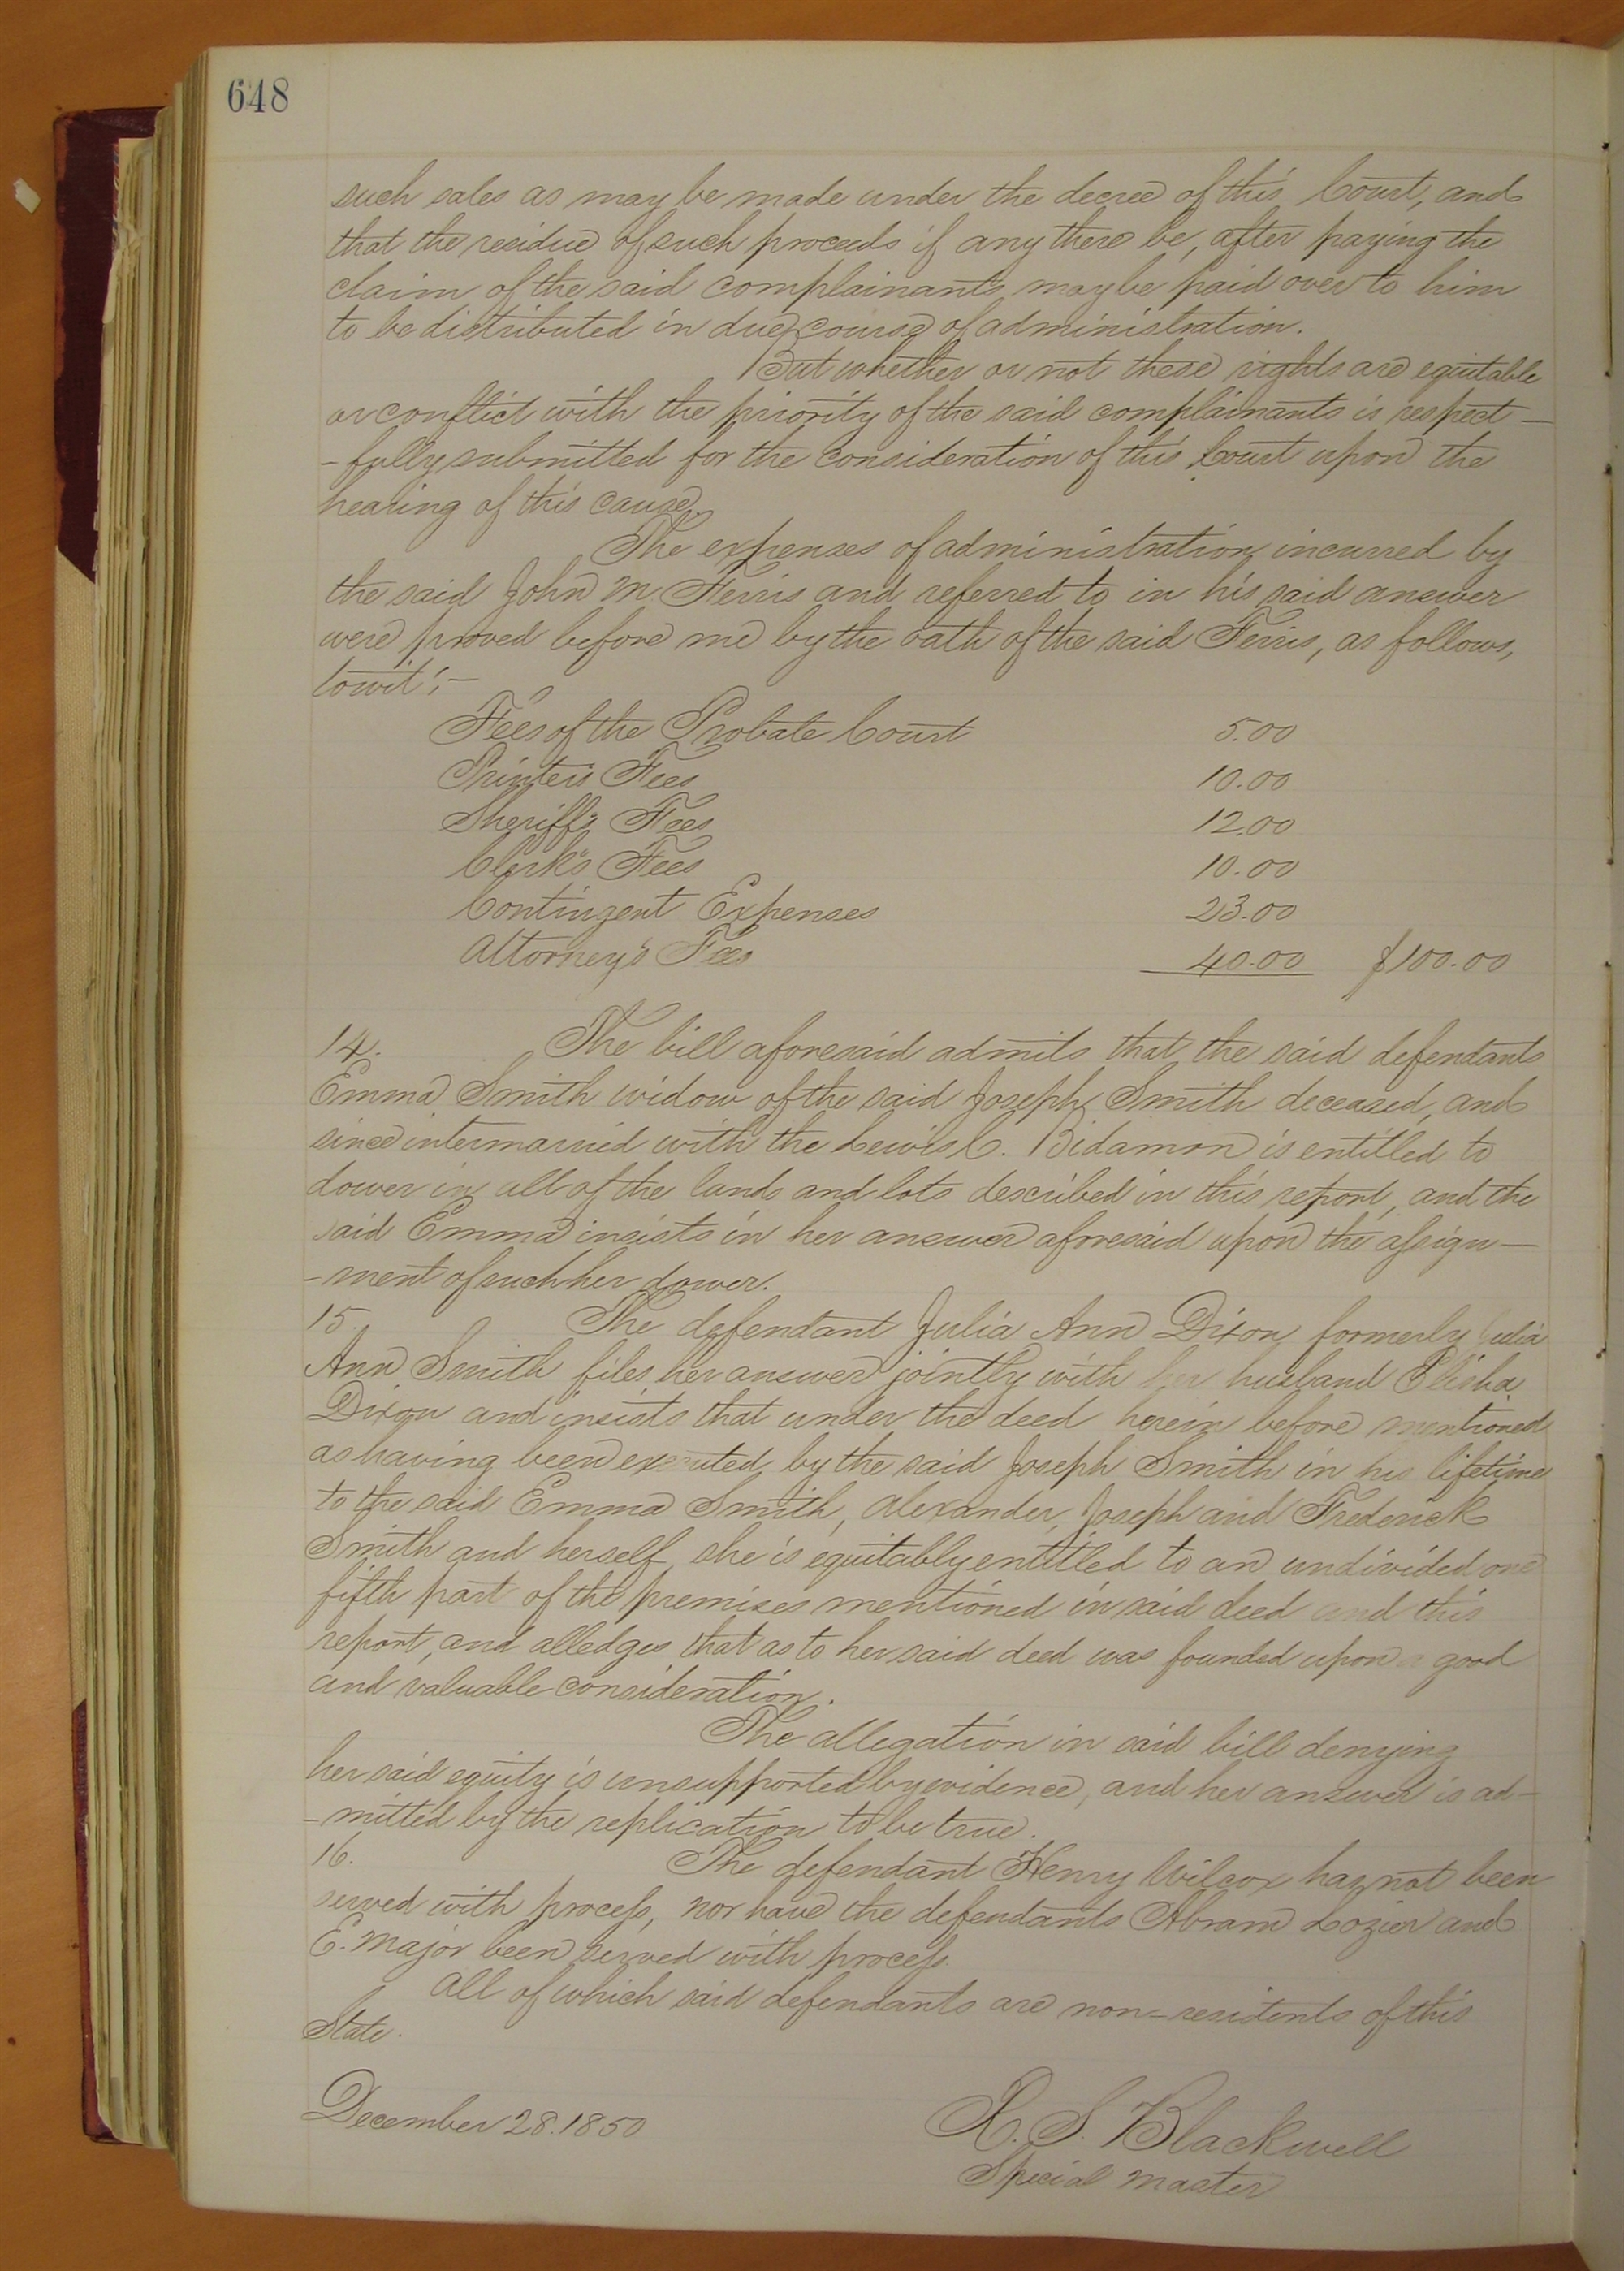 648
such sales as may be made under the decree of this Court, and
that the residue of such proceeds if any there be, after paying the
claim of the said complainants may be paid over to him
to be distributed in due course of administration.
But whether or not these rights are equitable
or conflict with the priority of the said complainants is respect-
-fully submitted for the consideration of this Court upon the
hearing of this cause.
The expenses of administration incurred by
the said John M. Ferris and referred to in his said answer
were proved before me by the oath of the said Ferris, as follows,
towit:-
Fees of the Probate Court 5.00
Printer's Fees 10.00
Sheriff's Fees 12.00
Clerk's Fees 10.00
Contingent Expenses 23.00
Attorney's Fees 40.00 $100.00
14. The bill aforesaid admits that the said defendants
Emma Smith widow of the said Joseph Smith deceased, and
since intermarried with the Lewis C. Bidamon is entitled to
dower in all of the lands and lots described in this report, and the
said Emma insists in her answer aforesaid upon the assign-
-ment of such her dower.
15. The defendant Julia Ann Dixon formerly Julia
Ann Smith files her answer jointly with her husband Elisha
Dixon and insists that under the deed herein before mentioned
as having been executed by the said Joseph Smith in his lifetime
to the said Emma Smith, Alexander, Joseph and Frederick
Smith and herself, she is equitably entitled to an undivided one
fifth part of the premises mentioned in said deed and this
report, and alledges that as to her said deed was founded upon a good
and valuable consideration.
The allegation in said bill denying
her said equity is unsupported by evidence, and her answer is ad-
-mitted by the replication to be true.
16. The defendant Henry Wilcox has not been
served with process, nor have the defendants Abram Lozier and
E. Major been served with process.
All of which said defendants are non-residents of this
State.
December 28. 1850 R. S. Blackwell
Special Master